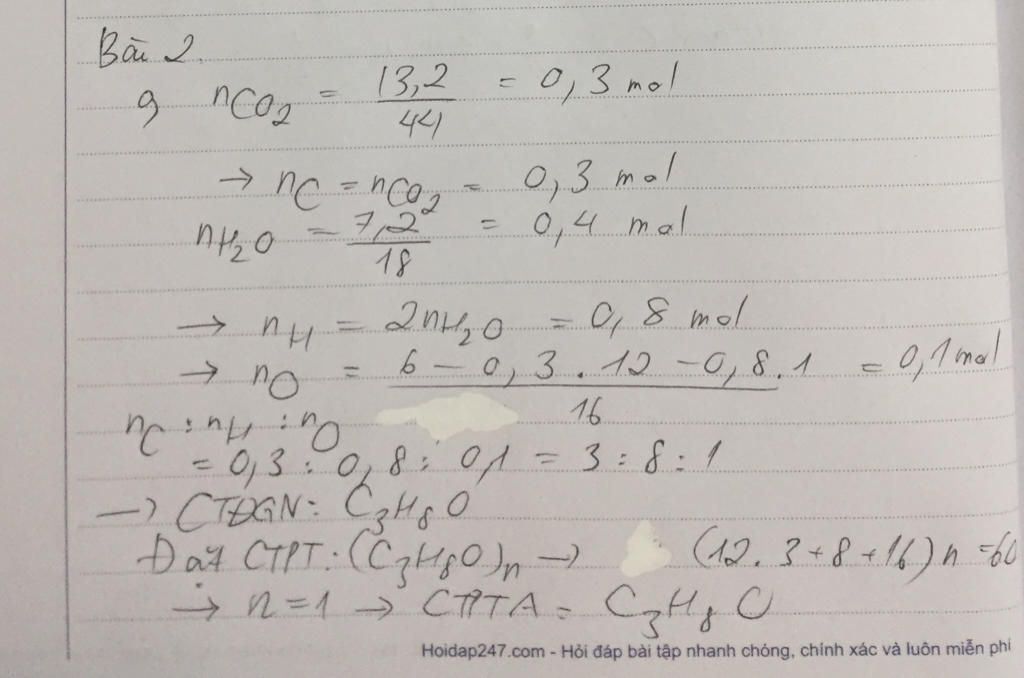 Bài 2.
a) nCO2 = 13,2/44 = 0,3 mol
→ nC = nCO2 = 0,3 mol
nH2O = 7,2/18 = 0,4 mol
→ nH = 2nH2O = 0,8 mol
→ nO = (6 - 0,3 . 12 - 0,8 . 1)/16 = 0,1 mol
nC : nH : nO
= 0,3 : 0,8 : 0,1 = 3 : 8 : 1
→ CTĐGN: C3H8O
Đặt CTPT: (C3H8O)n → (12. 3 + 8 + 16) n = 60
→ n = 1 → CTPTA = C3H8O
Hoidap247.com - Hỏi đáp bài tập nhanh chóng, chính xác và luôn miễn phí